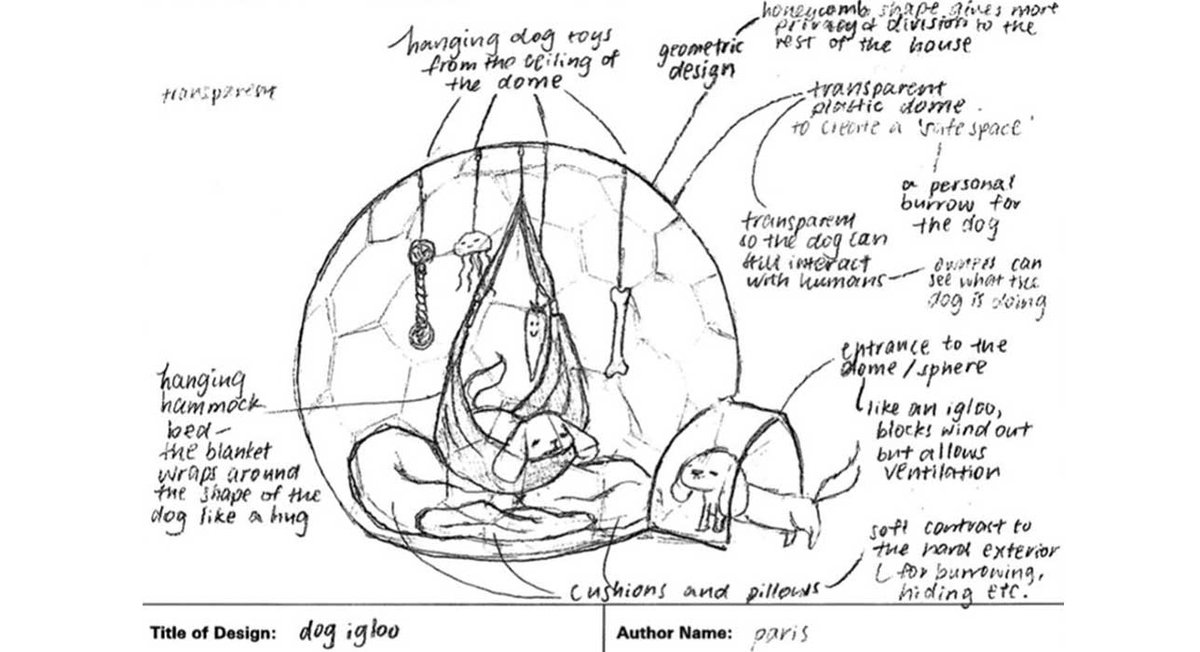 honeycomb shape gives more
privacy & division to the
rest of the house
geometric
design
hanging dog toys
from the ceiling of
the dome
transparent
transparent
plastic dome
to create a 'safe space'
a personal
burrow for
the dog
transparent
so the dog can
still interact
with humans
owners can
see what the
dog is doing
entrance to the
dome/sphere
like an igloo,
blocks wind out
but allows
ventilation
hanging
hammock
bed-
the blanket
wraps around
the shape of the
dog like a hug
soft contrast to
the hard exterior
for burrowing,
hiding etc.
cushions and pillows
Title of Design: dog igloo
Author Name: paris